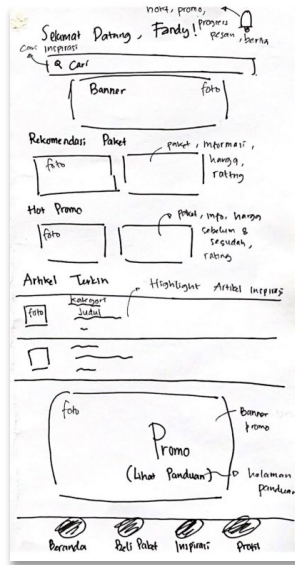 notif, promo,
progress
pesan, berita
Selamat Datang, Fandy!
Cari inspirasi
Cari
Banner
foto
Rekomendasi Paket
foto
paket, informasi,
harga,
rating
Hot Promo
foto
paket, info, harga
sebelum &
sesudah,
rating
Artikel Terkini
Highlight Artikel Inspirasi
foto
Kategori
Judul
foto
Promo
(Lihat Panduan)
Banner
promo
halaman
panduan
Beranda
Beli Paket
Inspirasi
Profil